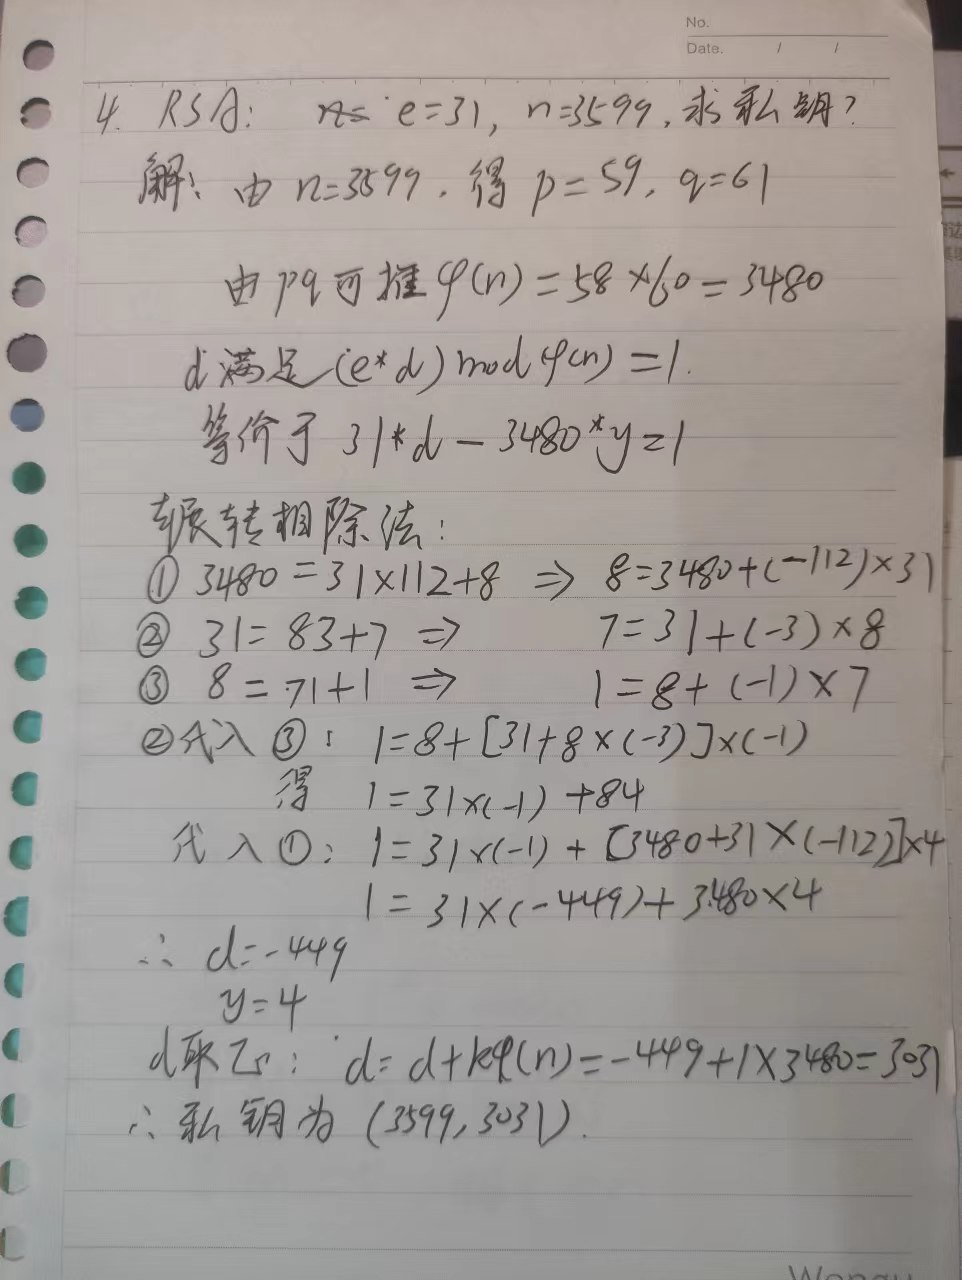 No.
Date. / /
4. RSA: n= e=31, n=3599, 求私钥?
解: 由 n=3599, 得 p=59, q=61
由pq可推 φ(n)=58×60=3480
d满足(e*d)modφ(n)=1.
等价于 31*d-3480*y=1
辗转相除法:
① 3480=31×112+8 ⇒ 8=3480+(-112)×31
② 31=83+7 ⇒ 7=31+(-3)×8
③ 8=71+1 ⇒ 1=8+(-1)×7
②代入③: 1=8+[31+8×(-3)]×(-1)
得 1=31×(-1)+84
代入①: 1=31×(-1)+[3480+31×(-112)]×4
1=31×(-449)+3480×4
∴ d=-449
y=4
d取正: d=d+kφ(n)=-449+1×3480=3031
∴私钥为(3599,3031).